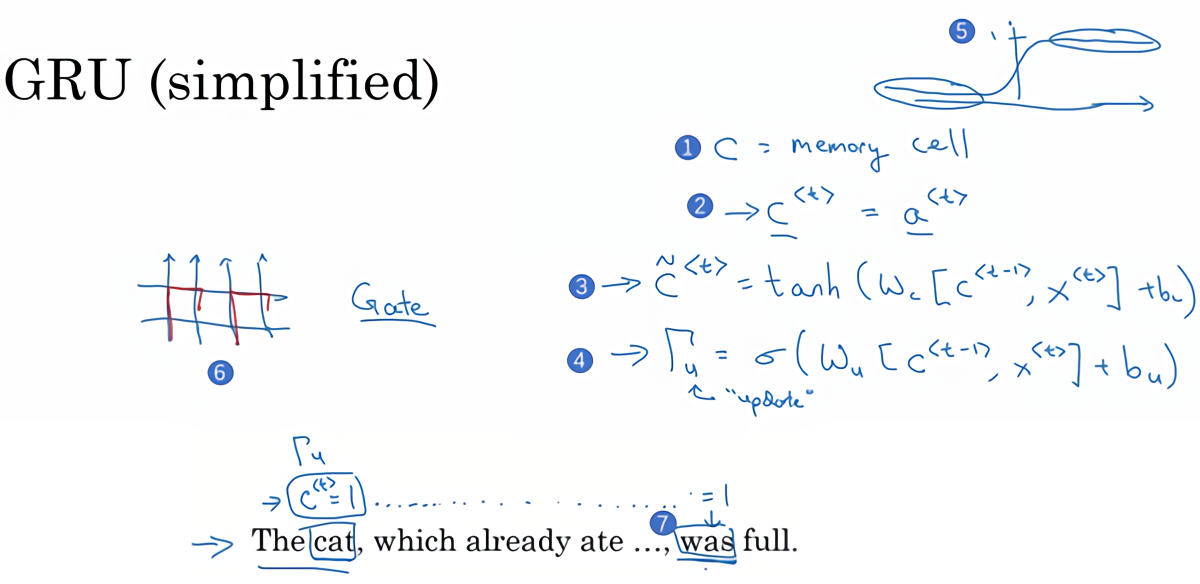 GRU (simplified)
5
1 C = memory cell
2 → c^{<t>} = a^{<t>}
3 → c̃^{<t>} = tanh (W_c [c^{<t-1>}, x^{<t>}] + b_c)
Gate
4 → Γ_u = σ(W_u [c^{<t-1>}, x^{<t>}] + b_u)
6
"update"
Γ_u
→ c^{<t>} = 1 ........... = 1
7
→ The cat, which already ate ..., was full.